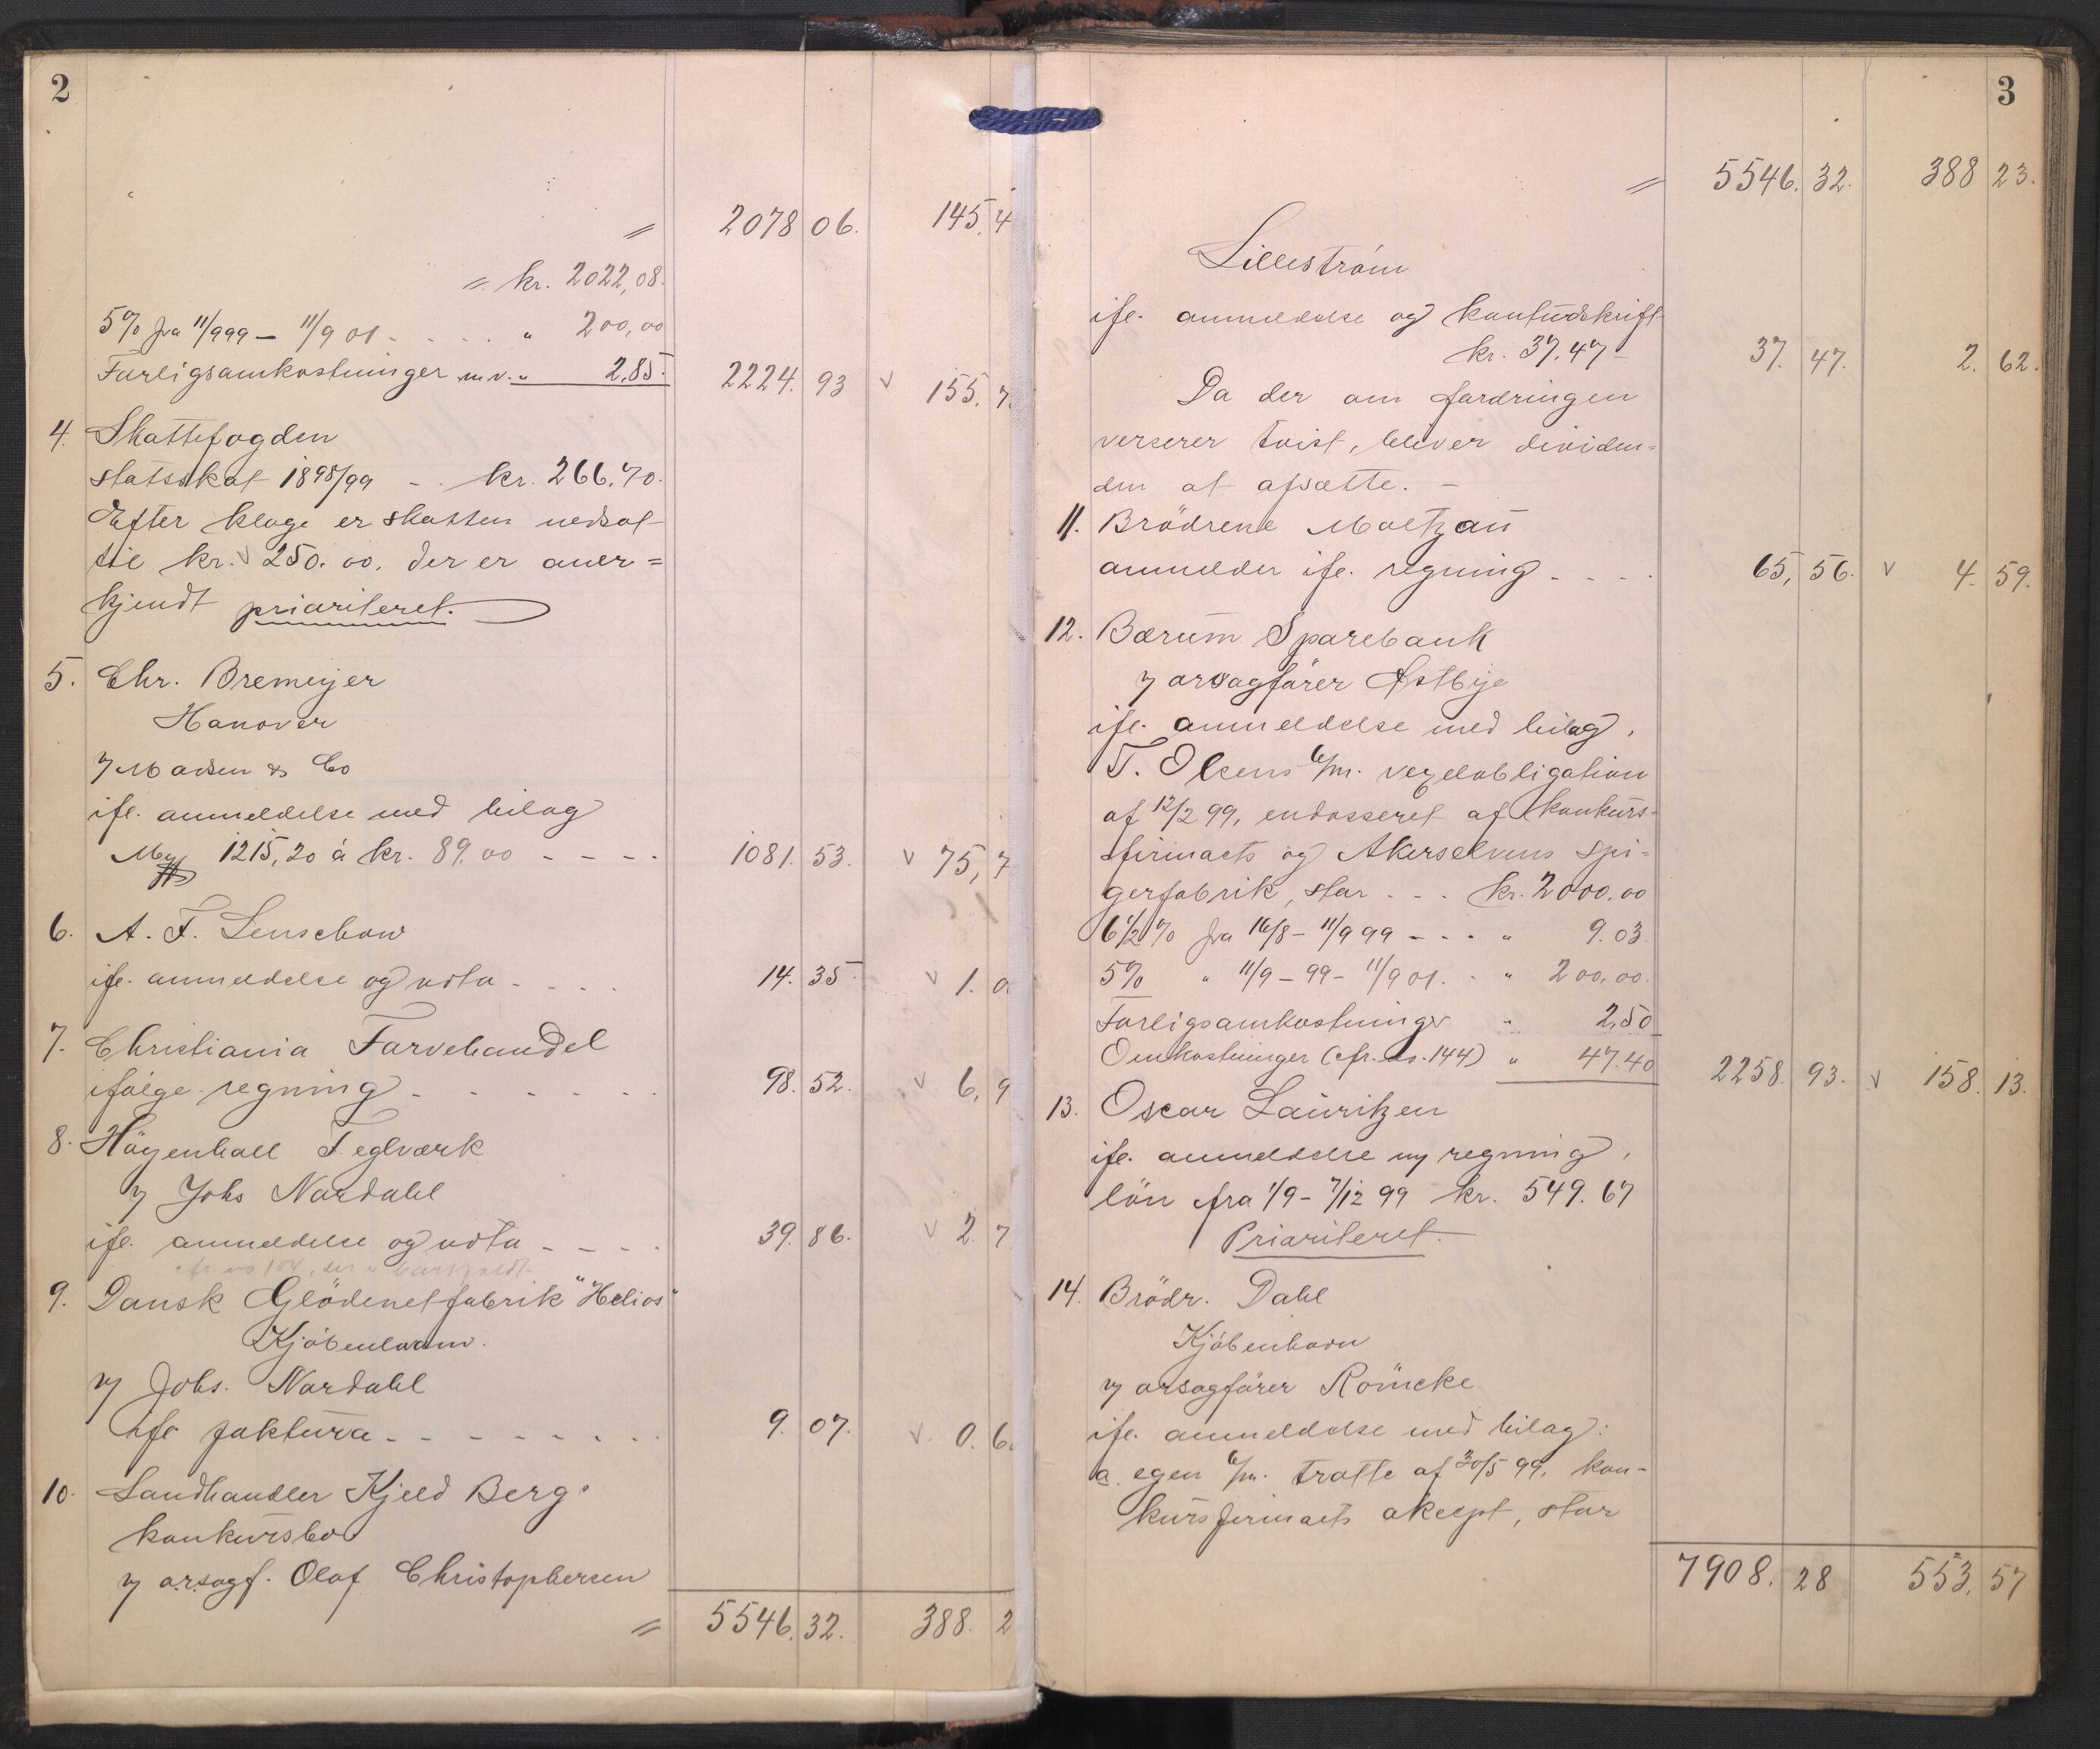 2
〃 2078 06. 145. 4
〃 kr. 2022,08.
5% fra 11/9 99 – 11/9 01 - - - - „ 200,00
Forligsomkostninger m.v. „ 2,85. 2224. 93 v 155. 7
4. Skattefogden
statsskat 1898/99 - kr. 266.70.
Efter klage er skatten nedsat
til kr. 250.00. der er aner=
kjendt prioriteret.
5. Chr. Bremeyer
Hanover
v/ Madsen & Co
ifl. anmeldelse med bilag
1215,20 à kr. 89.00 - - - - 1081. 53. v 75, 7
6. A. F. Lenschow
ifl. anmeldelse og nota - - - - 14. 35 v 1. 0
7. Christiania Farvehandel
ifølge regning - - - - - - 98. 52. v 6, 9
8. Höyenhall Teglværk
v/ Johs Nordahl
ifl. anmeldelse og nota - - - - 39. 86. v 2. 7
9. Dansk Glödenetfabrik "Helios"
Kjöbenhavn.
v/ Johs. Nordahl
ifl. faktura - - - - - - - - 9. 07. v. 0. 6
10. Landhandler Kjeld Bergs
konkursbo
v/ orsagf. Olaf Christophersen
〃 5546. 32. 388. 2
3
〃 5546. 32. 388 23.
Lilleström
ifl. anmeldelse og kontoudskrift
kr. 37.47 - 37. 47. 2. 62.
Da der om fordringen
verserer tvist, bliver dividen=
den at afsætte. -
11. Brödrene Moltzau
anmelder ifl. regning - - - - 65, 56. v 4. 59.
12. Bærum Sparebank
v/ orsagförer Østbye
ifl. anmeldelse med bilag,
T. Olsens 6/m. vexelobligation
af 12/2 99, endosseret af konkurs-
firmaets og Akerselvens Spi-
gerfabrik, stor - - - kr. 2000.00
6 1/2% fra 16/8 – 11/9 99 - - - - „ 9.03.
5% „ 11/9 – 99 – 11/9 01. - „ 200.00.
Forligsomkostninger „ 2,50
Omkostninger (cfr. no. 144) „ 47.40 2258. 93. v 158. 13.
13. Oscar Lauritzen
ifl. anmeldelse og regning,
lön fra 1/9 – 7/12 99 kr. 549.67
Prioriteret.
14. Brödr. Dahl
Kjöbenhavn
v/ orsagförer Römcke
ifl. anmeldelse med bilag:
a. egen 6/m. tratte af 30/5 99, kon-
kursfirmaets akcept, stor
7908. 28 553. 57